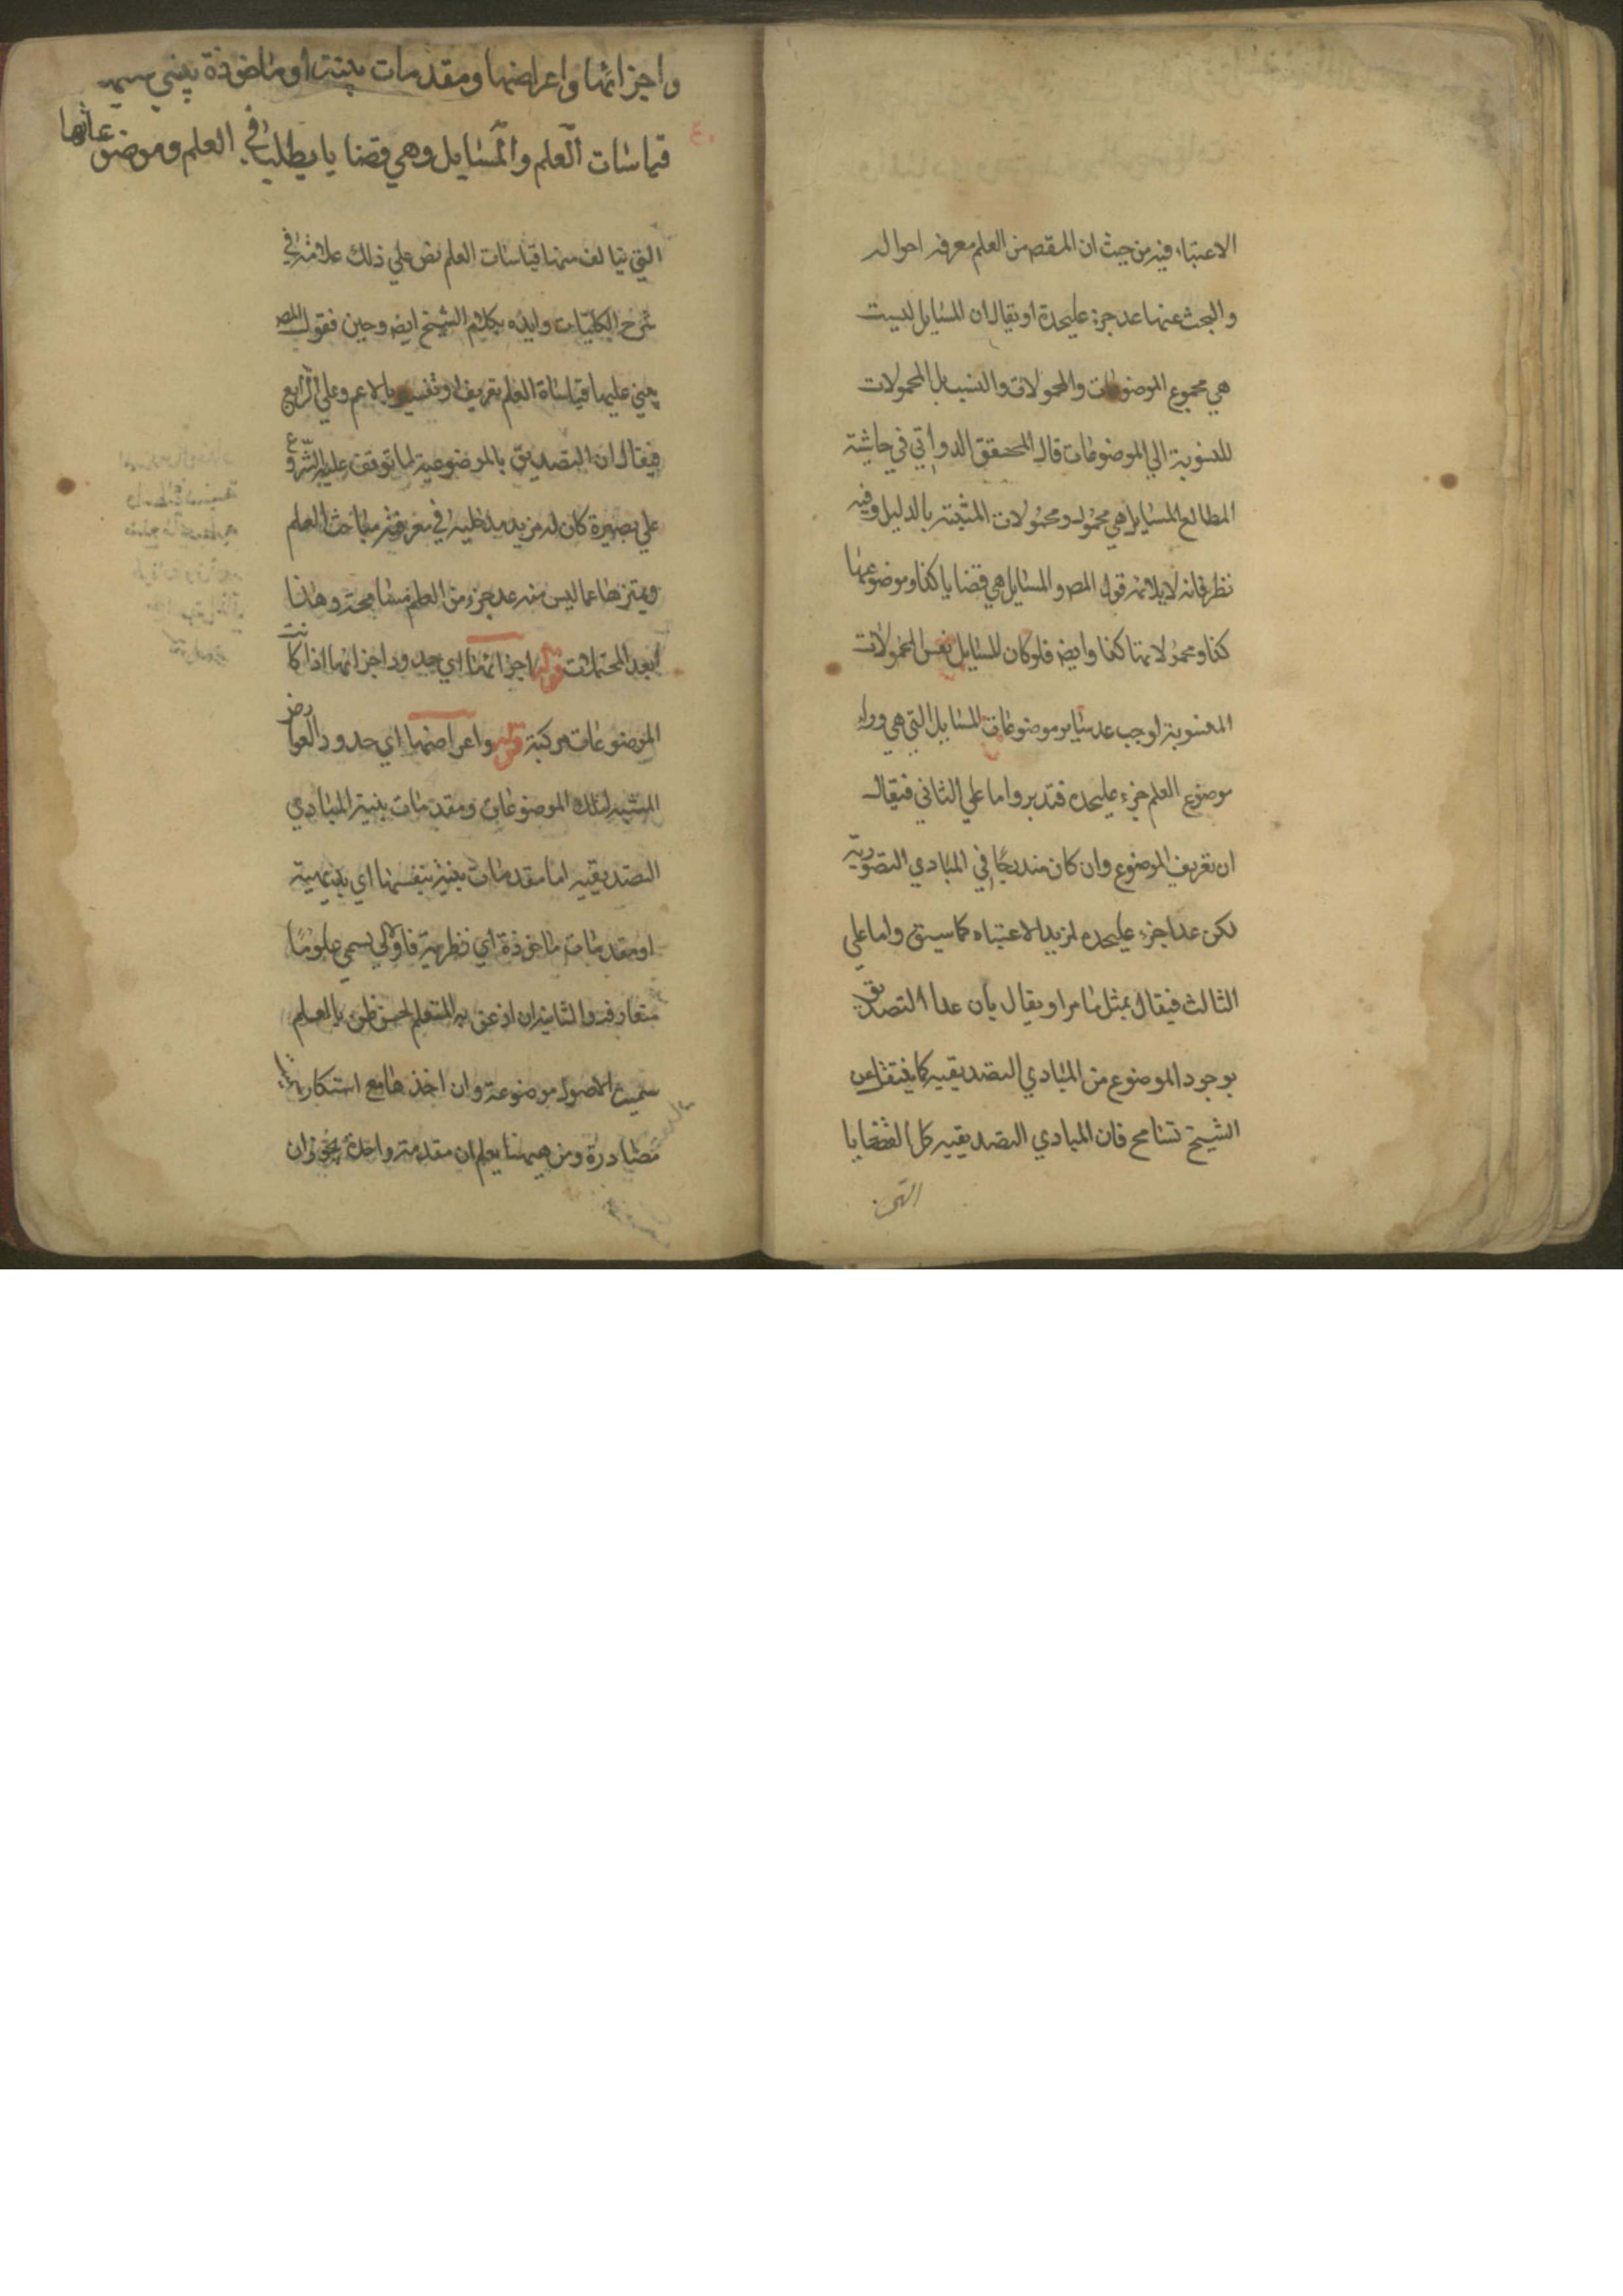 الاعتباء فيه من حيث ان المقصم من العلم معرفه احواله
والبحث عنها عد جزء عليحدة او يقال ان المسايل ليست
هي مجموع الموضوعات والمحمولات والنسب بل المحمولات
المنسوبة الي الموضوعات قال المحقق الدواني في حاشية
المطالع المسايل هي محمولـ ومحمولات المثبتة بالدليل وفيه
نظر فانه لا يلائمه قول المص والمسايل هي قضايا كذا وموضوعها
كذا ومحمولاتها كذا وايضه فلو كان المسايل نفس المحمولات
المنسوبة لوجب عد ساير موضوعات المسايل التي هي وراء
موضوع العلم جزء عليحده فتدبر واما علي الثاني فيقال
ان تعريف الموضوع وان كان مندرجًا في المبادي التصورية
لكن عدا جزء عليحده لمزيد الاعتباه كما سبق واما علي
الثالث فيقال بمثل ما مر او يقال بان عدا التصديق
بوجود الموضوع من المبادي التصديقيه كما نقل عن
الشيخ تسامح فان المبادي التصديقييه كل القضايا
التي
٤٠
واجزائها واعراضها ومقدمات بينة او ماخوذة يبني عليها
قياسات العلم والمسايل وهي قضايا يطلب في العلم وموضوعاتها
التي يتالف منها قياسات العلم نص علي ذلك علامة في
شرح الكليات وايده بكلام الشيخ ايضه وحين فقول المص
يبني عليها قياساة العلم تعريف او تفسير بالاعم وعلي الرابع
فيقال ان التصديق بالموضوعية لما توقف عليه الشروع
علي بصيرة كان له مزيد مدخلية في معرفة مباحث العلم
وتميزها عما ليس منه عد جزء من العلم مسامحة وهذا
ابعد المحتملات قوله اجزائها اي حدود اجزائها اذا كانت
الموضوعات مركبة قوله واعراضها اي حدود العوارض
المثبته لتلك الموضوعات ومقدمات بينة المبادي
التصديقيه اما مقدمات بينة بنفسها اي بديهية
او مقدمات ماخوذة اي نظرية فاولي تسمي علومًا
متعارفه والثانيه ان اذعن به المتعلم لحسن ظن بالعلم
سميت الاصول موضوعة وان اخذها مع استنكار
مصادرة ومن ههنا يعلم ان مقدمة واحدة يجوز ان